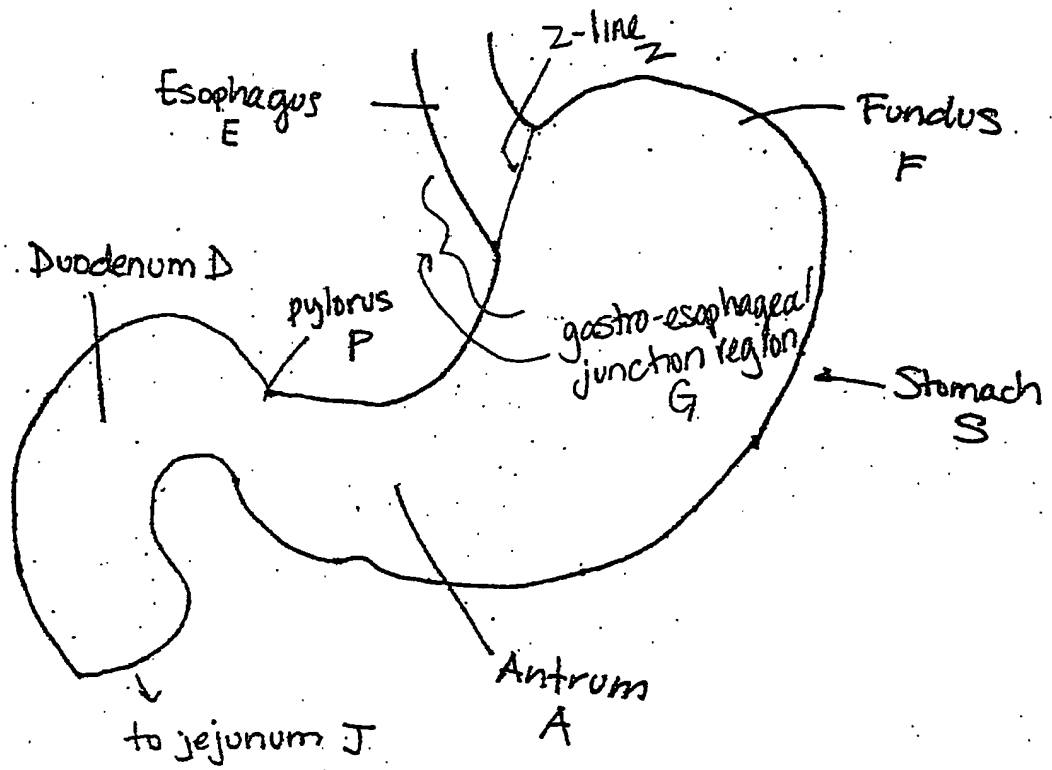 Z-line
Z
Esophagus
E
Fundus
F
Duodenum D
pylorus
P
gastro-esophageal
junction region
G
Stomach
S
Antrum
A
to jejunum J